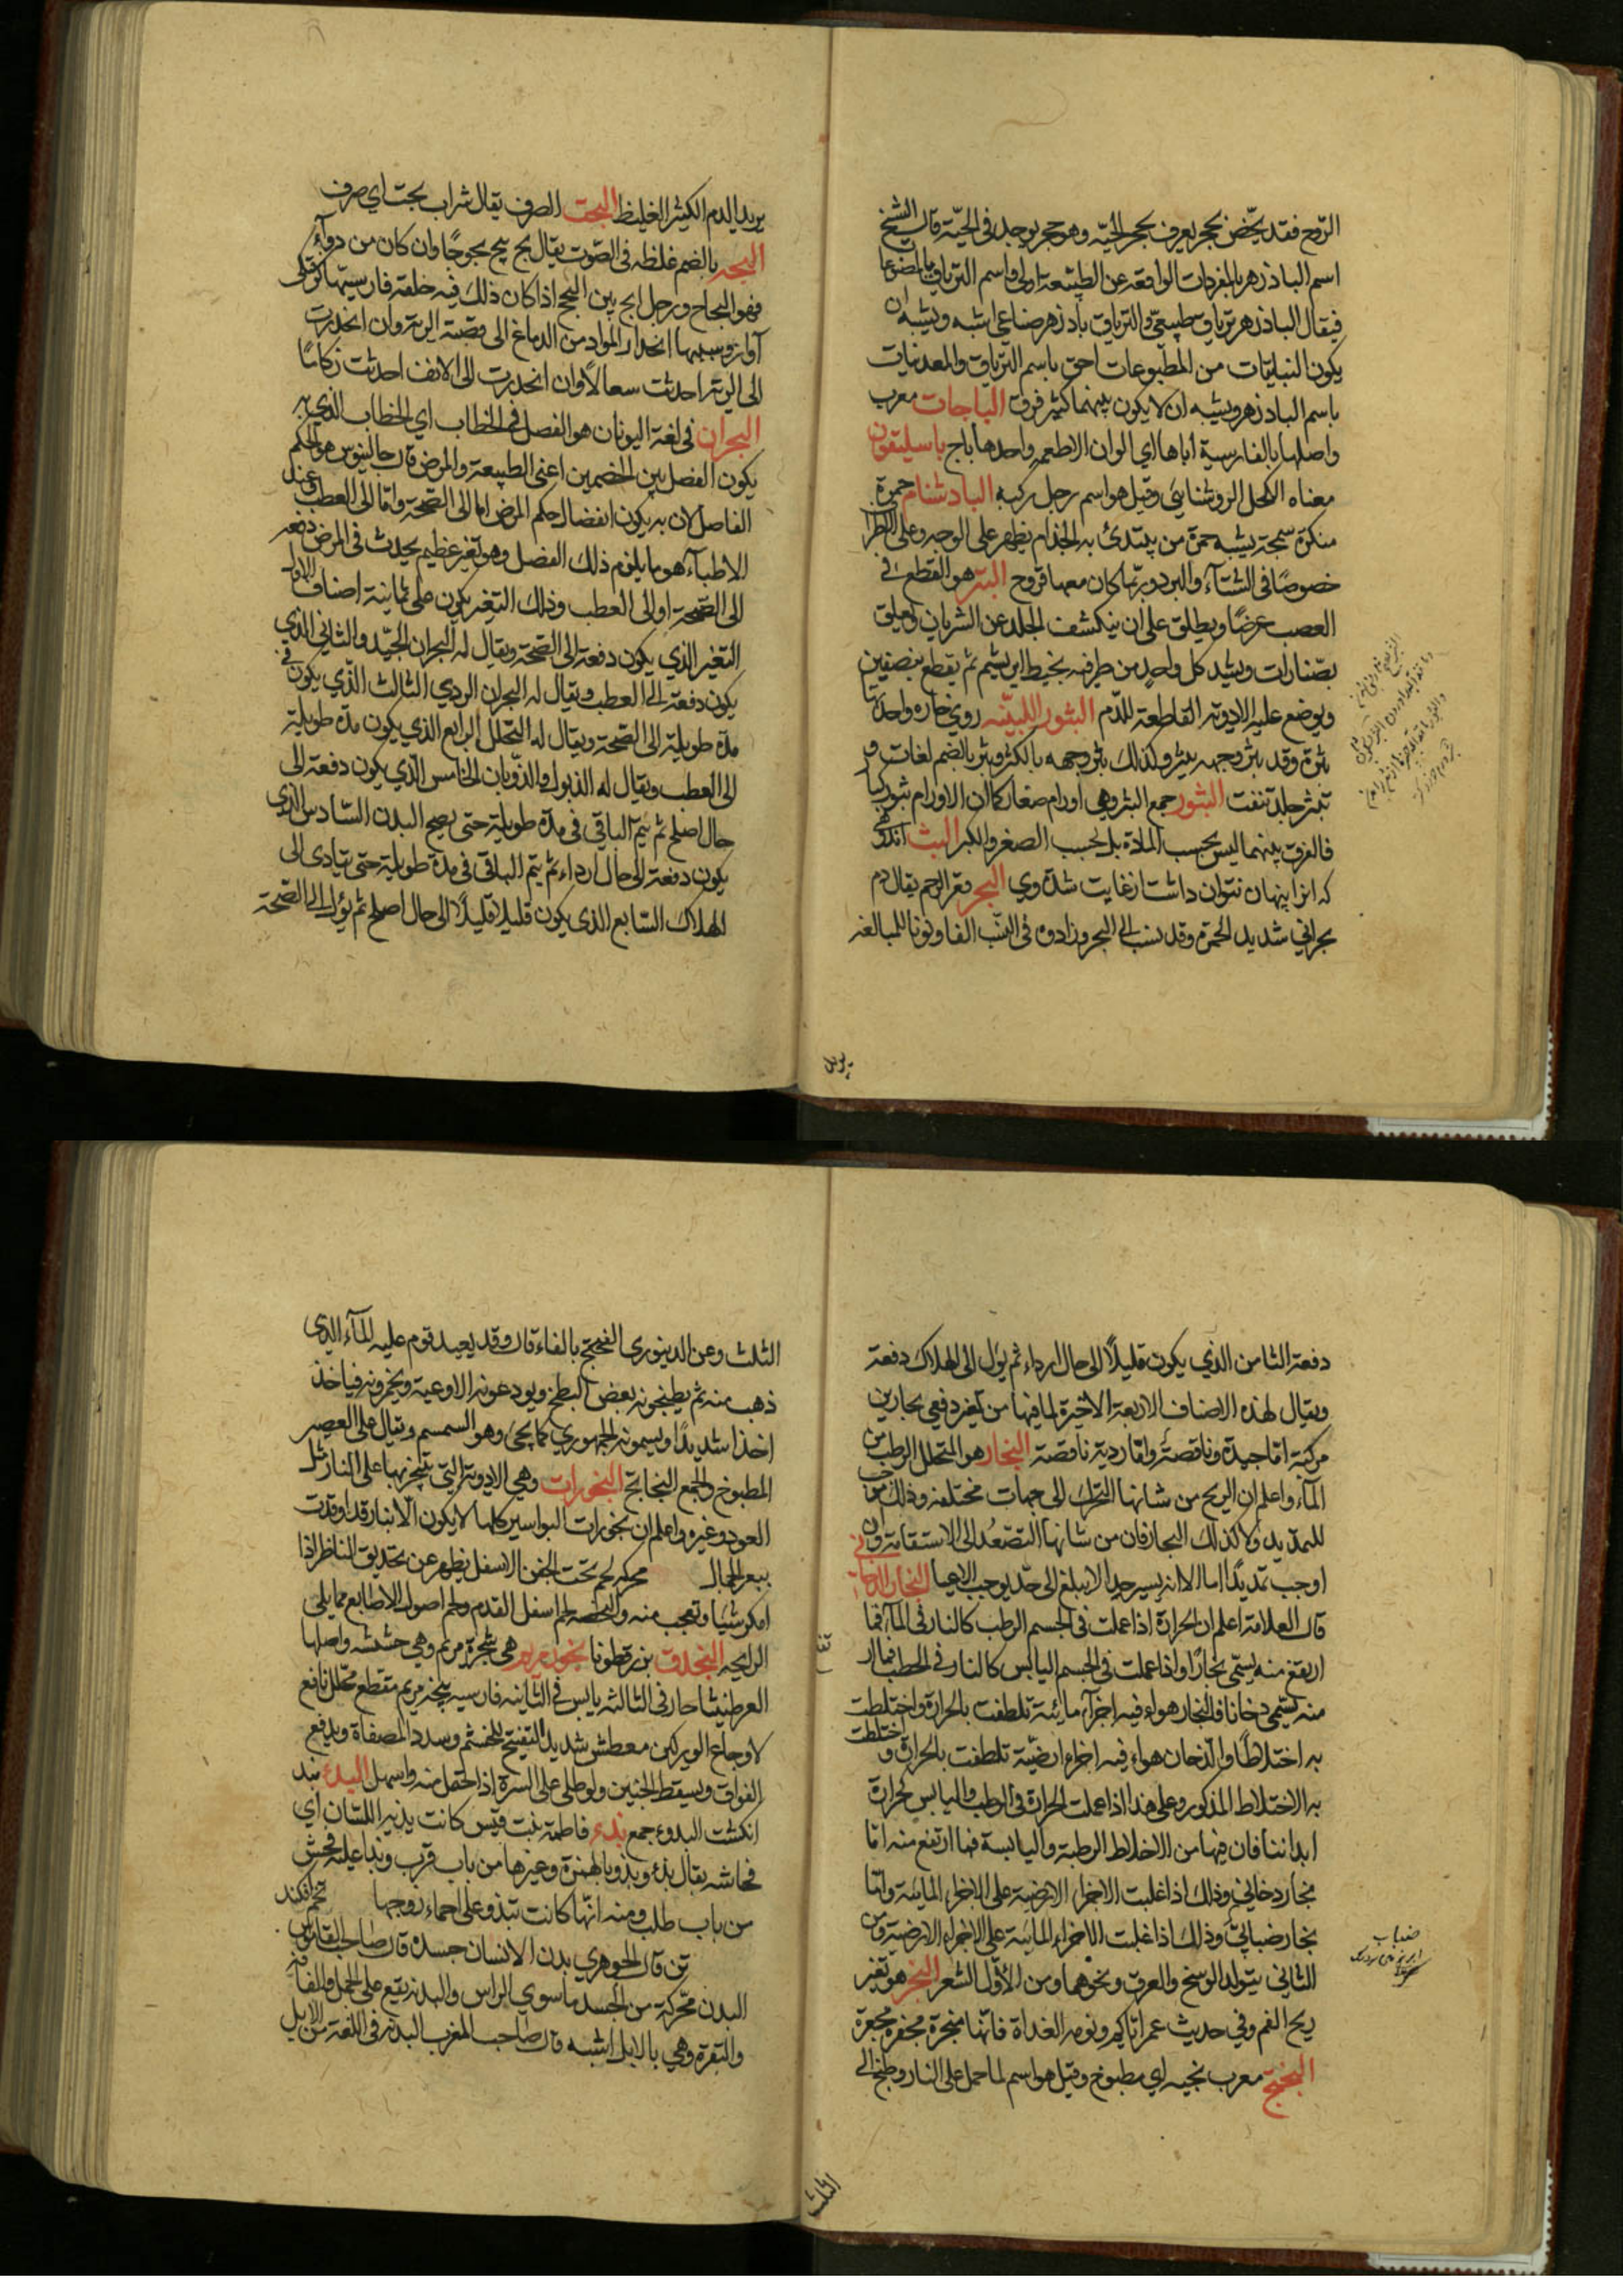 الروح فقد يخص بحجر يعرف بحجر الحيّة وهو حجر يوجد في الحيّة قال الشيخ
اسم الباذزهر بالمفردات الواقعة عن الطبيعة اولى واسم الترياق بالمصنوعات
فيقال الباذزهر ترياق طبيعيّ والترياق باذزهر صناعي اشبه ويشبه ان
يكون النباتيات من المطبوعات احق باسم الترياق والمعدنيات
باسم الباذزهر ويشبه ان لا يكون بينهما كثير فرق الباجات معرب
واصلها بالفارسية اباها اي الوان الاطعمه واحدها باج باسليقون
معناه الكحل الروشنايي وقيل هو اسم رجل ركبه البادشنام حمرة
منكرة سمجة يشبه حمرة من يبتدئ به الجذام يظهر على الوجه وعلى الاطراف
خصوصًا في الشتاء والبرد وربما كان معها قروح البتر هو القطع في
العصب عرضًا ويطلق على ان ينكشف الجلد عن الشريان ويعلق
بصنارات ويشد كل واحد من طرفيه بخيط ابريشم ثم يقطع بنصفين
ويوضع عليه الادوية القاطعة للدم البثور اللبنيّه روي خاره واحدتها
بثرة وقد بثر وجهه يبثر وكذلك بثر وجهه بالكثر وبثر بالضم لغات و
تبثر جلده تنفت البثور جمع البثر وهي اورام صغار كما ان الاورام بثور كبار
فالفرق بينهما ليس بحسب المادة بل بحسب الصغر والكبر البث اندوهي
كه انرا پنهان نتوان داشت از غايت شدة وي البحر قعر الرحم يقال دم
بحراني شديد الحمرة وقد ينسب الى البحر وزادوه في النسب الفا ونونا للمبالغه
يريد
يريد الدم الكثير الغليظ البحت الصرف يقال شراب بحت اي صرف
البحه بالضم غلظه في الصوت يقال بح يبح بحوحًا وان كان من داء
فهو البحاح ورجل ابح بين البحح اذا كان ذلك فيه خلقة فارسيتها
آواز وسببها انحدار المواد من الدماغ الى قصبة الرية وان انحدرت
الى الرية احدثت سعالًا وان انحدرت الى الانف احدثت زكامًا
البحران في لغة اليونان هو الفصل في الخطاب اي الخطاب الذي به
يكون الفصل بين الخصمين اعني الطبيعة والمرض قال جالينوس هو الحكم
الفاصل لان به يكون انفصال حكم المرض اما الى الصحة واما الى العطب وعند
الاطباء هو ما يلزم ذلك الفصل وهو تغير عظيم يحدث في المرض دفعة
الى الصحة او الى العطب وذلك التغير يكون على ثمانية اصناف الاول
التغير الذي يكون دفعة الى الصحة ويقال له البحران الجيّد والثاني الذي
يكون دفعة الى العطب ويقال له البحران الردي الثالث الذي يكون في
مدة طويلة الى الصحة ويقال له التحلل الرابع الذي يكون مدة طويلة
الى العطب ويقال له الذبول والذوبان الخامس الذي يكون دفعة الى
حال اصلح ثم يتم الباقي في مدة طويلة حتى يصح البدن السادس الذي
يكون دفعة الى حال ارداء ثم يتم الباقي في مدة طويلة حتى يتادى الى
الهلاك السابع الذي يكون قليلا قليلًا الى حال اصلح ثم يؤل الى الصحة
دفعة الثامن الذي يكون قليلًا الى حال ارداء ثم يؤل الى الهلاك دفعة
ويقال لهذه الاصناف الاربعة الاخيرة لما فيها من تغير دفعي بحارين
مركبة اما جيدة وناقصة واما ردية ناقصة البخار هو المتحلل الرطب من
الماء واعلم ان الريح من شانها التحرك الى جهات مختلفه وذلك موجب
للتمديد ولا كذلك البخار فان من شانها التصعد الى الاستقامة وان
اوجب تمديدًا اما الا انه يسير جدا لا يبلغ الى حد يوجب الاعيا البخار الدخاني
قال العلامة اعلم ان الحرارة اذا عملت في الجسم الرطب كالنار في الماء فما
ارتفع منه يسمّى بخارًا واذا عملت في الجسم اليابس كالنار في الحطب فما ار
منه يسمى دخانا فالبخار هواء فيه اجزاء مائية تلطفت بالحرارة واختلطت
به اختلاطًا والدخان هواء فيه اجزاء ارضيّة تلطفت بالحرارة و اختلطت
به الاختلاط المذكور وعلى هذا اذا عملت الحرارة في الرطب واليابس كحرارة
ابداننا فان فيها من الاخلاط الرطبة واليابسة فما ارتفع منه اما
بخار دخاني وذلك اذا غلبت الاجزاء الارضية على الاجزاء المائية واما
بخار ضبابيّ وذلك اذا غلبت الاجزاء المائية على الاجزاء الارضية ومن
الثاني يتولد الوسخ والعرق ونحوهما ومن الاول الشعر البخر هو تغير
ريح الفم وفي حديث عمر اياكم ونومة الغداة فانها مبخرة مجفرة مجعرة
البختج معرب پخته اي مطبوخ وقيل هو اسم لما حمل على النار وطبخ الى
ضباب
الثلث
الثلث وعن الدينوري الفختج بالفاء قال وقد يعيد قوم عليه الماء الذي
ذهب منه ثم يطبخونه بعض الطبخ ويودعونه الاوعية ويخمرونه فياخذ
اخذا شديدًا ويسمونه الجمهوري كما يجئ وهو السمسم ويقال على العصير
المطبوخ والجمع البخاتج البخورات وهي الادوية التي يتبخر بها على النار مثل
العود وغيره واعلم ان بخورات البواسير كلها لا يكون الا بنار قد اوقدت
ببعر الجمال محركه لحم تحت الجفن الاسفل يظهر عن تحديق الناظر اذا
انكر شيئا وتعجب منه والبخصه لحم اسفل القدم ولحم اصول الاصابع مما يلي
الراحه البخدق بزر قطونا بخور مريم هي شجرة مريم وهي خشنه واصلها
العرطنيثا حار في الثالثه يابس في الثانيه فارسيه پنجه مريم مقطع محلل نافع
لاوجاع الوركين معطش شديد التفتيح للخشم وسدد المصفاة ويدفع
الفواق ويسقط الجنين ولو طلي على السرة اذا احتمل منه واسهل البدء بند
انكشت البدوء جمع بذء فاطمة بنت قيس كانت بذية اللسان اي
فحاشه يقال بذء وبذو بالهمزة وغيرها من باب قرب وبذا عليه فحش
من باب طلب ومنه انها كانت تبذو على احماء زوجها
قال الجوهري بدن الانسان جسده قال صاحب القاموس
البدن محركة من الجسد ما سوى الراس والبدنه يقع على الجمل والناقة
والبقرة وهي بالابل اشبه قال صاحب المغرب البدنه في اللغة من الابل